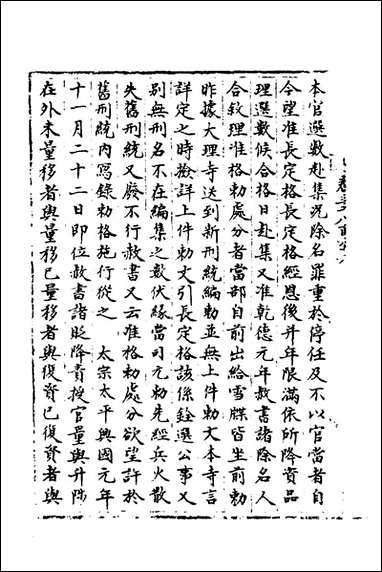 本官選數赴集況除名罪重於停任及不以官當者自
今望准長定格長定格經恩後并年限滿依所降資品
理選數候合格日赴集又准乾德元年赦書諸除名人
合敘理准格勅處分者當部自前出給雪牒皆坐前勅
昨據大理寺送到新刑統編勅並無上件勅文本寺言
詳定之時檢詳上件勅文引長定格該係銓選公事又
別無刑名不在編集之數伏緣當司元勅先經兵火散
失舊刑統又廢不行赦書又云准格勅處分欲望許於
舊刑統內寫錄勅格施行從之　太宗太平興國元年
十一月二十二日即位赦書諸貶降責授官量與升陟
在外未量移者與量移已量移者與復資已復資者與